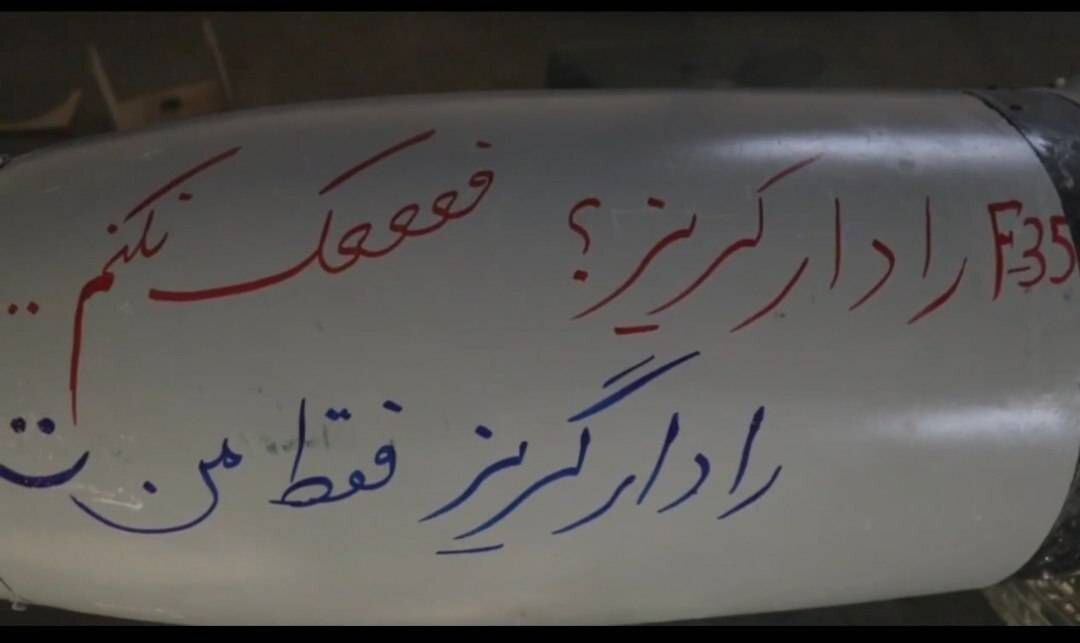 F-35 رادار گریز؟ فععععک نکنم..
رادار گریز فقط من ت